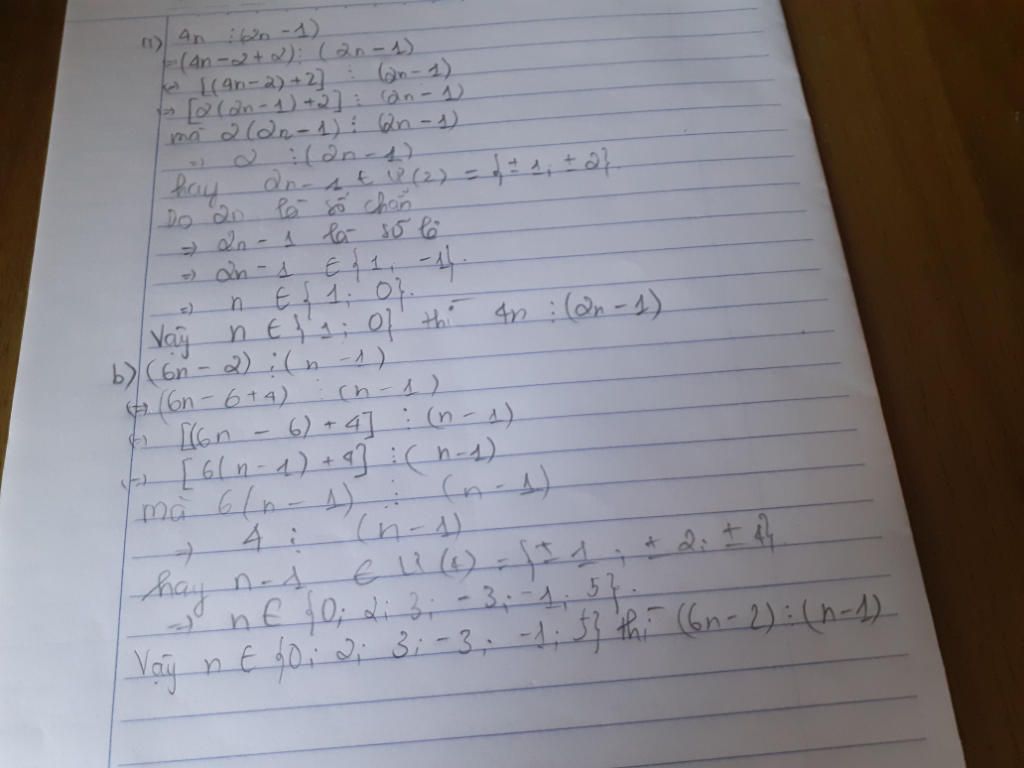 a) 4n ⋮ (2n - 1)
= (4n - 2 + 2) ⋮ (2n - 1)
⇔ [(4n - 2) + 2] ⋮ (2n - 1)
⇒ [2(2n - 1) + 2] ⋮ (2n - 1)
mà 2(2n - 1) ⋮ (2n - 1)
⇒ 2 ⋮ (2n - 1)
hay 2n - 1 ∈ Ư(2) = {±1; ±2}.
Do 2n là số chẵn
⇒ 2n - 1 là số lẻ
⇒ 2n - 1 ∈ {1; -1}.
⇒ n ∈ {1; 0}.
Vậy n ∈ {1; 0} thì 4n ⋮ (2n - 1)
b) (6n - 2) ⋮ (n - 1)
⇔ (6n - 6 + 4) ⋮ (n - 1)
⇔ [(6n - 6) + 4] ⋮ (n - 1)
⇔ [6(n - 1) + 4] ⋮ (n - 1)
mà 6(n - 1) ⋮ (n - 1)
⇒ 4 ⋮ (n - 1)
hay n - 1 ∈ Ư(4) = {±1; ±2; ±4}.
⇒ n ∈ {0; 2; 3; -3; -1; 5}.
Vậy n ∈ {0; 2; 3; -3; -1; 5} thì (6n - 2) ⋮ (n - 1)